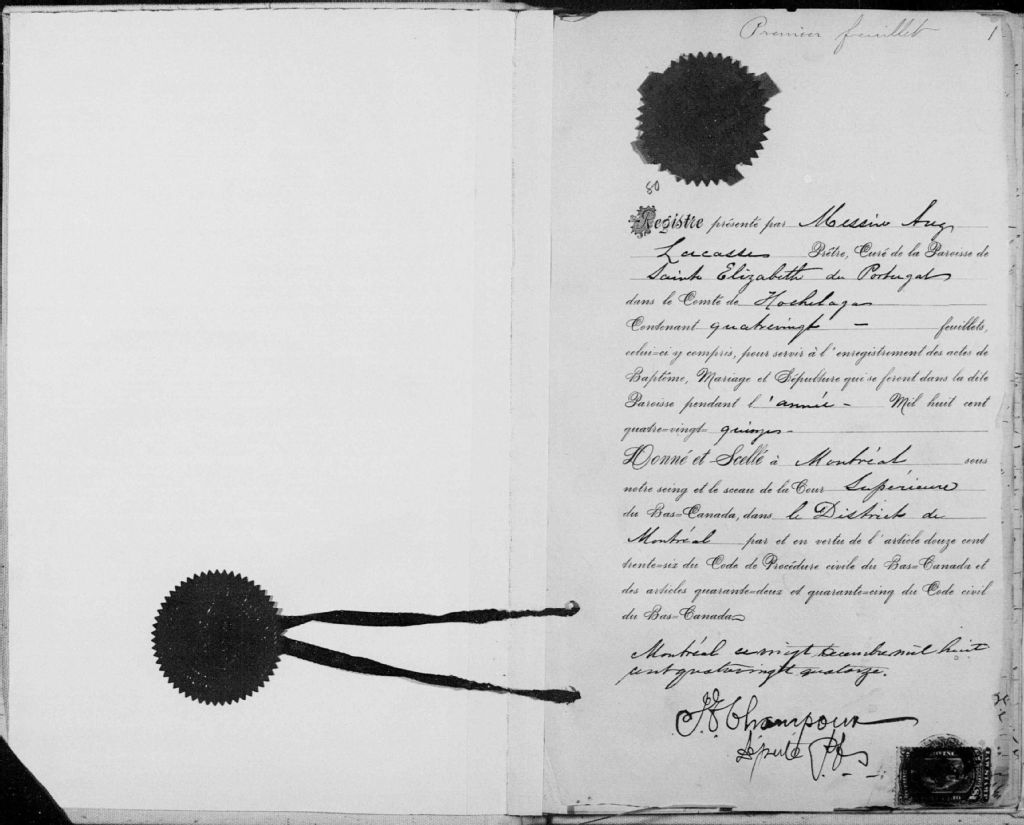 Premier feuillet 1
80
Registre présenté par Messire Aug
Lacasse Prêtre, Curé de la Paroisse de
Sainte Elizabeth du Portugal
dans le Comté de Hochelaga
Contenant quatrevingt — feuillets,
celui=ci y compris, pour servir à l'enregistrement des actes de
Baptême, Mariage et Sépulture qui se feront dans la dite
Paroisse pendant l'année - Mil huit cent
quatre=vingt= quinze -
Donné et Scellé à Montréal sous
notre seing et le sceau de la Cour Supérieure
du Bas=Canada, dans le District de
Montréal par et en vertu de l'article douze cent
trente=six du Code de Procédure civile du Bas=Canada et
des articles quarante=deux et quarante=cinq du Code civil
du Bas=Canada
Montréal ce vingt decembre mil huit
cent quatrevingt quatorze.
Champoux
Député P.